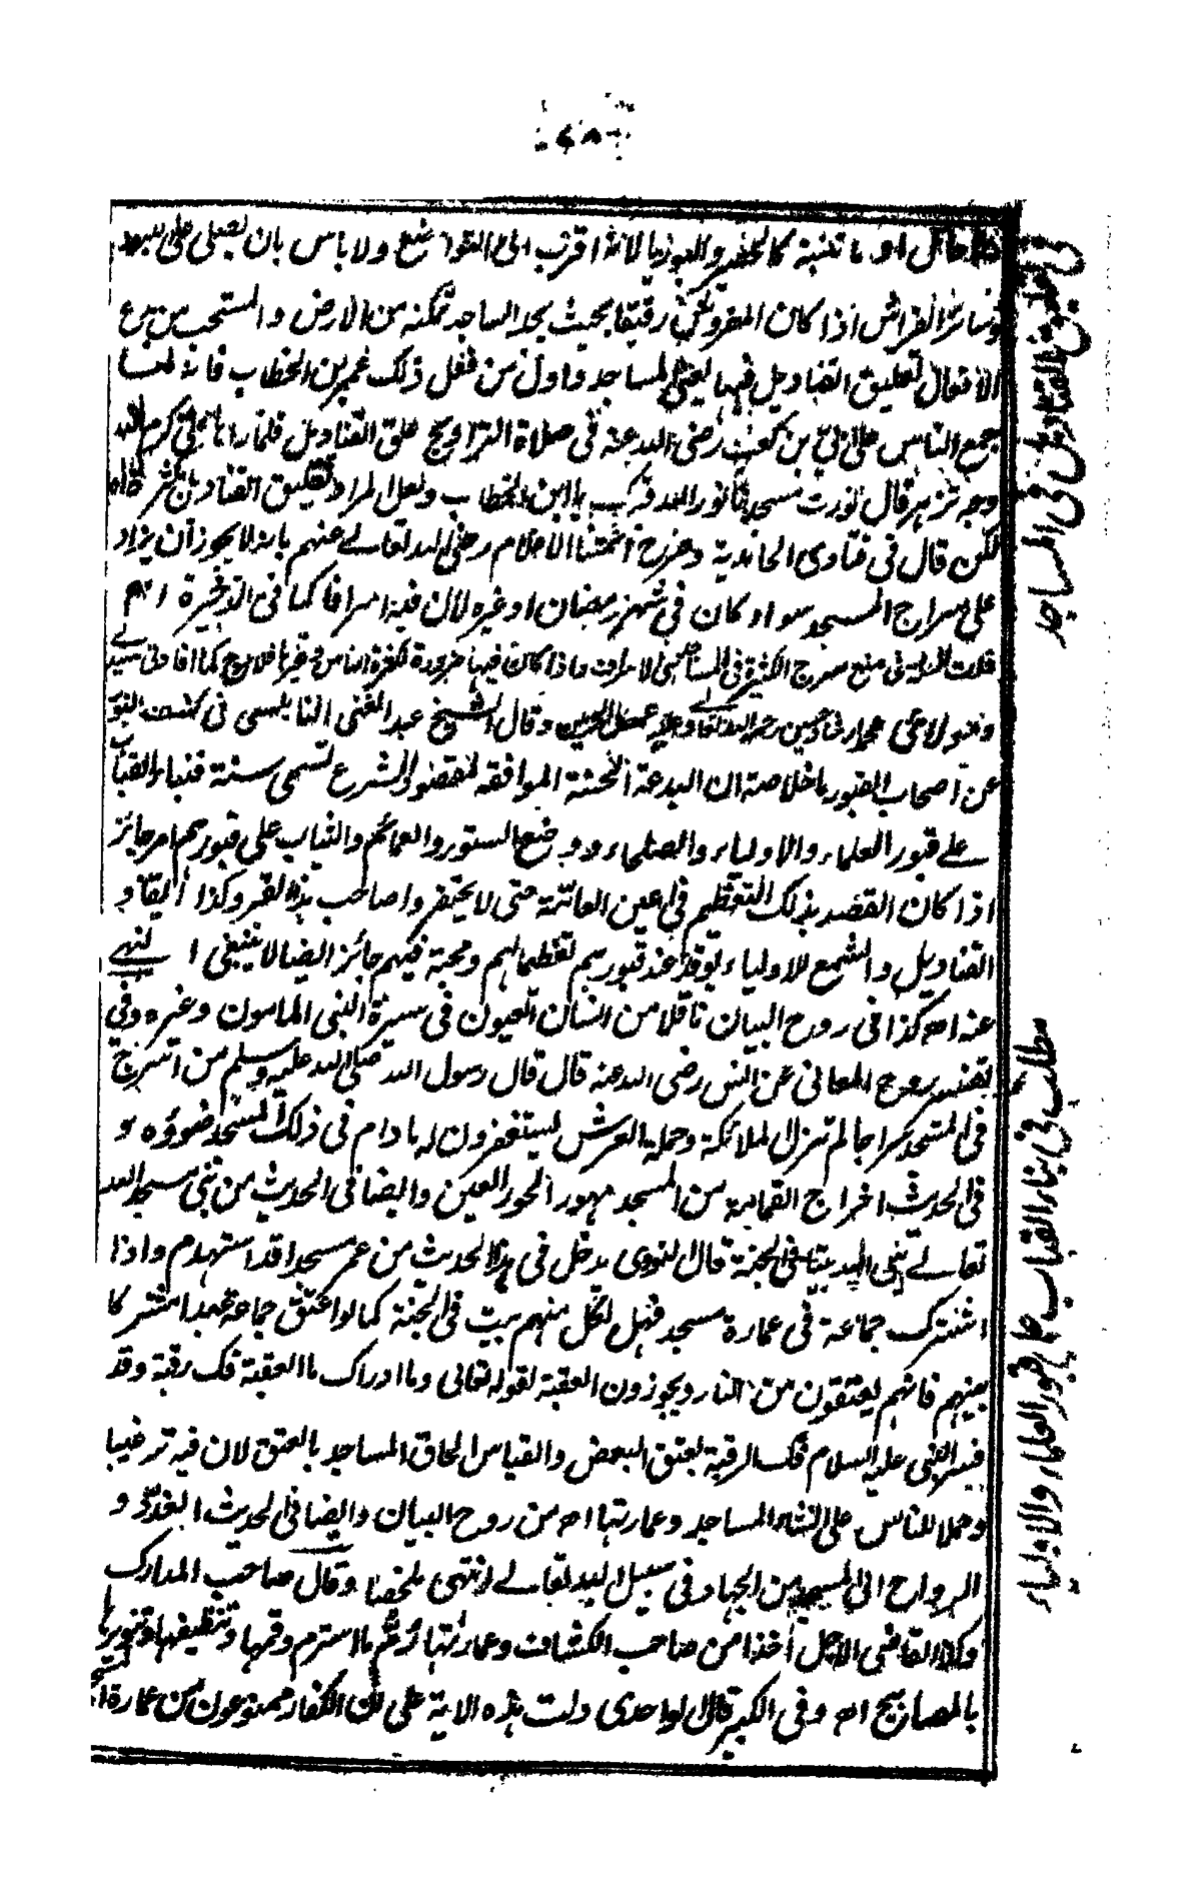 بلا حائل او ما تنبته كالحصير والبوريا لانه اقرب الى التواضع ولا باس بان يصلى على اللبد
وسائر الفراش اذا كان المفروش رقيقا بحيث يجد الساجد تمكنه من الارض والمستحب من بدع
الافعال تعليق القناديل فيها يعنى المساجد واول من فعل ذلك عمر بن الخطاب فانه لما
جمع الناس على ابي بن كعب رضى الله عنه فى صلاة التراويح علق القناديل فلما راها على كرم الله
وجهه تزهر قال نورت مسجدنا نور الله قبرك يا ابن الخطاب ولعل المراد تعليق القناديل بكثرة اه
لكن قال فى فتاوى الحامدية وصرح ائمتنا الاعلام رضى الله تعالے عنهم بانه لا يجوز ان يزاد
على سراج المسجد سواء كان فى شهر رمضان او غيره لان فيه اسرافا كما فى الذخيرة اهم
قلت فى منع سرج الكثيرة فى المساجد هى الاسراف واذا كان فيها ضرورة لكثرة الناس وغيرها فلا حرج كما افادنى سيدے
ومولائى محمد ارشاد حسين رحمه الله تعالے وقال الشيخ عبد الغنى النابلسى فى كشف النور
عن اصحاب القبور ما خلاصته ان البدعة الحسنة الموافقة لمقصود الشرع تسمى سنة فبناء القباب
علے قبور العلماء والاولياء والصلحاء ووضع الستور والعمائم والثياب على قبورهم امر جائز
اذا كان القصد بذلك التعظيم فى اعين العامة حتى لا يحتقروا صاحب هذا القبر وكذا ايقاد
القناديل والشمع للاولياء يوقد عند قبورهم تعظيما لهم ومحبة فيهم جائز ايضا لا ينبغى النهے
عنه اه كذا فى روح البيان ناقلا من انسان العيون فى سيرة النبى المامون وغيره وفى
تفسير روح المعانى عن انس رضى الله عنه قال قال رسول الله صلى الله عليه وسلم من اسرج
فى المسجد سراجا لم تزال الملائكة وحملة العرش يستغفرون له ما دام فى ذلك المسجد ضوؤه و
فى الحديث اخراج القمامة من المسجد مهور الحور العين وايضا فى الحديث من بنى مسجد الله
تعالے بنى الله بيتا فى الجنة قال النووى يدخل فى هذا الحديث من عمر مسجدا قد استهدم واذا
اشترك جماعة فى عمارة مسجد فهل لكل منهم بيت فى الجنة كما لو اعتق جماعة عبدا مشتركا
بينهم فانهم يعتقون من النار ويجوزون العقبة لقوله تعالى وما ادراك ما العقبة فك رقبة وقد
فسر النبى عليه السلام فك الرقبة بعتق البعض والقياس الحاق المساجد بالعتق لان فيه ترغيبا
وحملا للناس على انشاء المساجد وعمارتها اه من روح البيان وايضا فى الحديث الغدو و
الرواح الى المسجد من الجهاد فى سبيل الله تعالے انتهى ملخصا وقال صاحب المدارك
وكذا القاضى الاجل اخذا من صاحب الكشاف وعمارتها رم ما استرم وقمها وتنظيفها وتنويرها
بالمصابيح اه وفى الكبير قال الواحدى دلت هذه الاية على ان الكفار ممنوعون من عمارة
تعليق القناديل فى المساجد
مطلب فى بناء القباب على قبور العلماء والاولياء